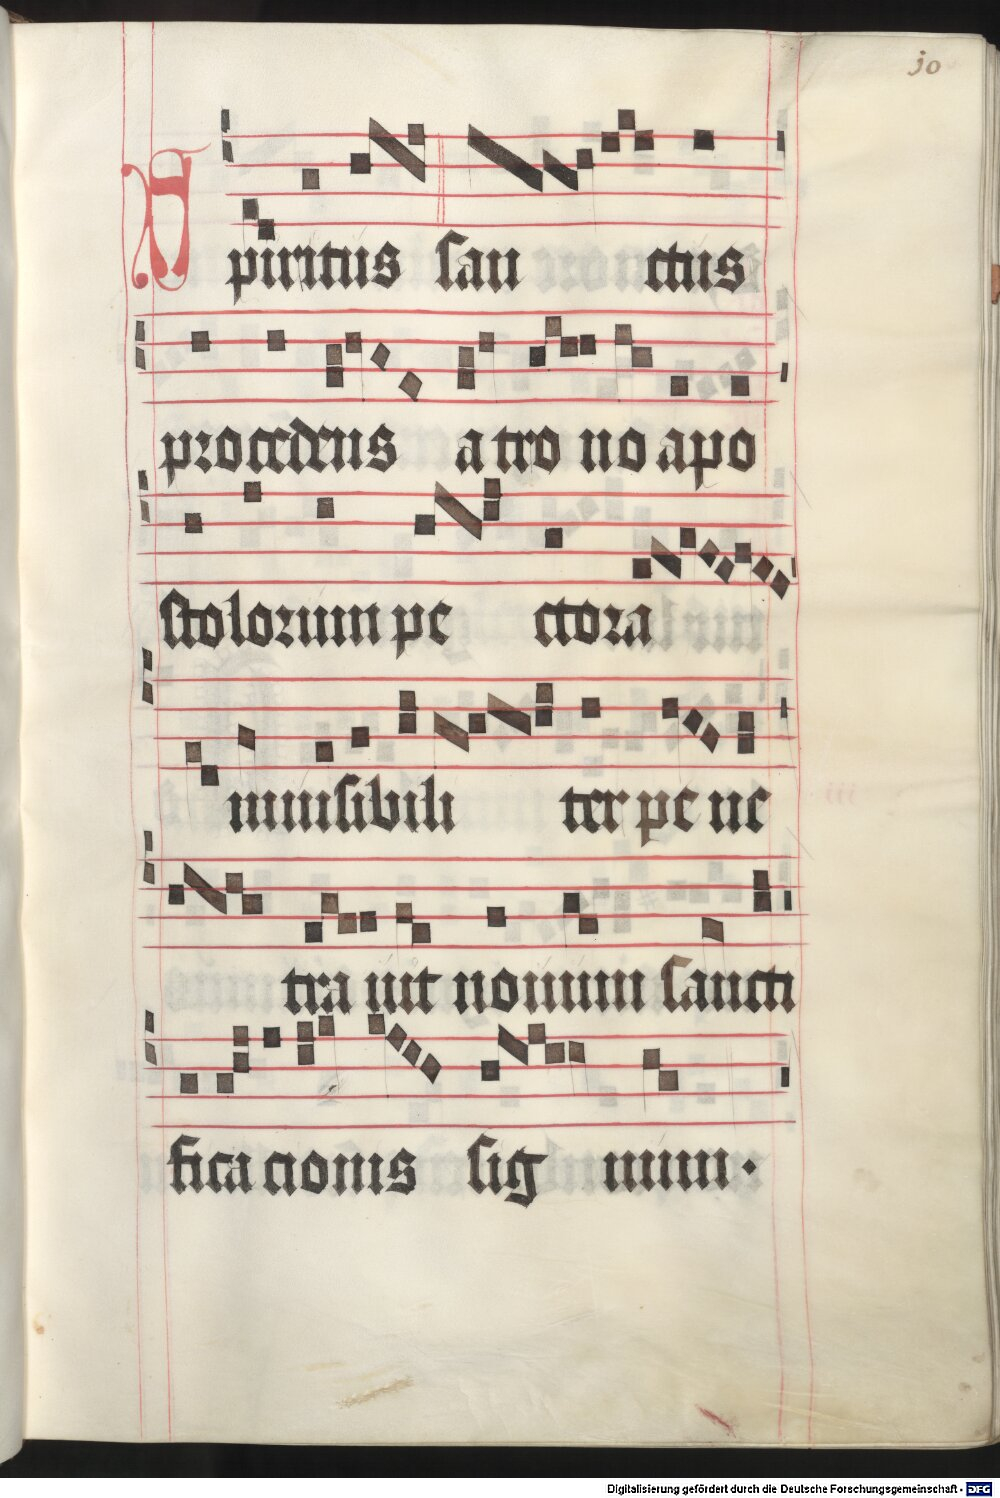 jo
Spiritus san ctus
procedens a tro no apo
stolorum pe ctora
inuisibili ter pe ne
tra uit nouum sancti
fica cionis sig num.
Digitalisierung gefördert durch die Deutsche Forschungsgemeinschaft - DFG